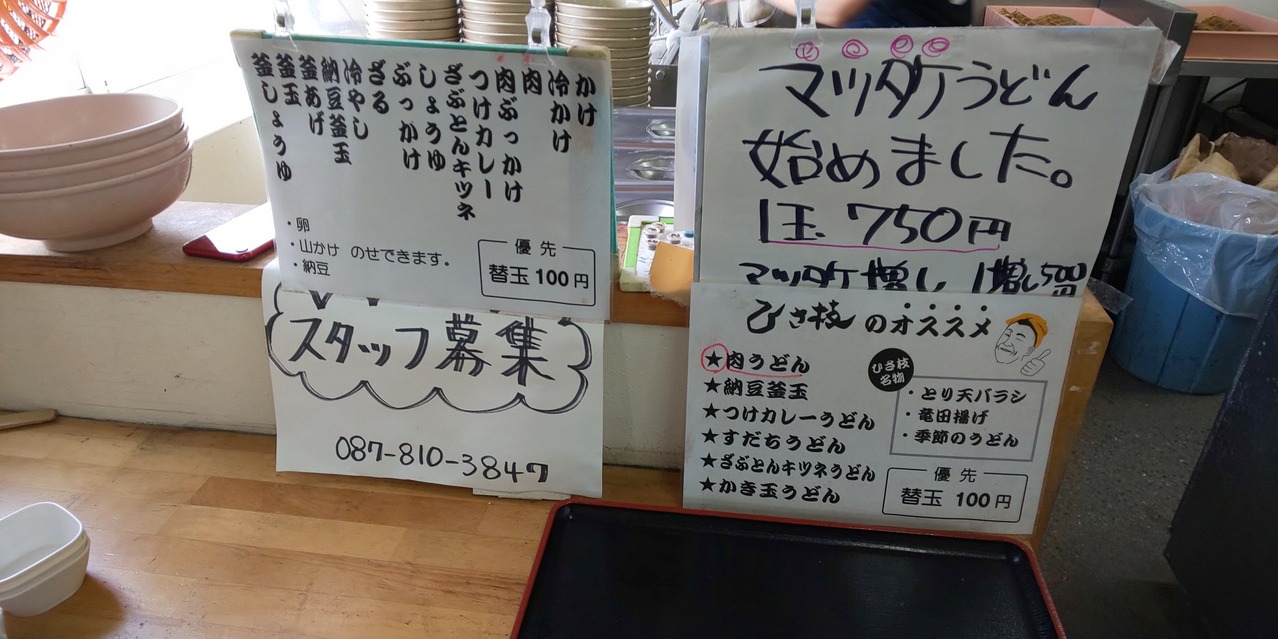 かけ
冷かけ
肉
肉ぶっかけ
つけカレー
ざぶとんキツネ
しょうゆ
ぶっかけ
ざる
冷やし
納豆釜玉
釜あげ
釜玉
釜しょうゆ
・卵
・山かけ のせできます。
・納豆
優先
替玉 100円
スタッフ募集
087-810-3847
マツタケうどん
始めました。
1玉 750円
マツタケ増し 1増し500円
ひさ枝のオススメ
★肉うどん
★納豆釜玉
★つけカレーうどん
★すだちうどん
★ざぶとんキツネうどん
★かき玉うどん
ひさ枝
名物
・とり天バラシ
・竜田揚げ
・季節のうどん
優先
替玉 100円